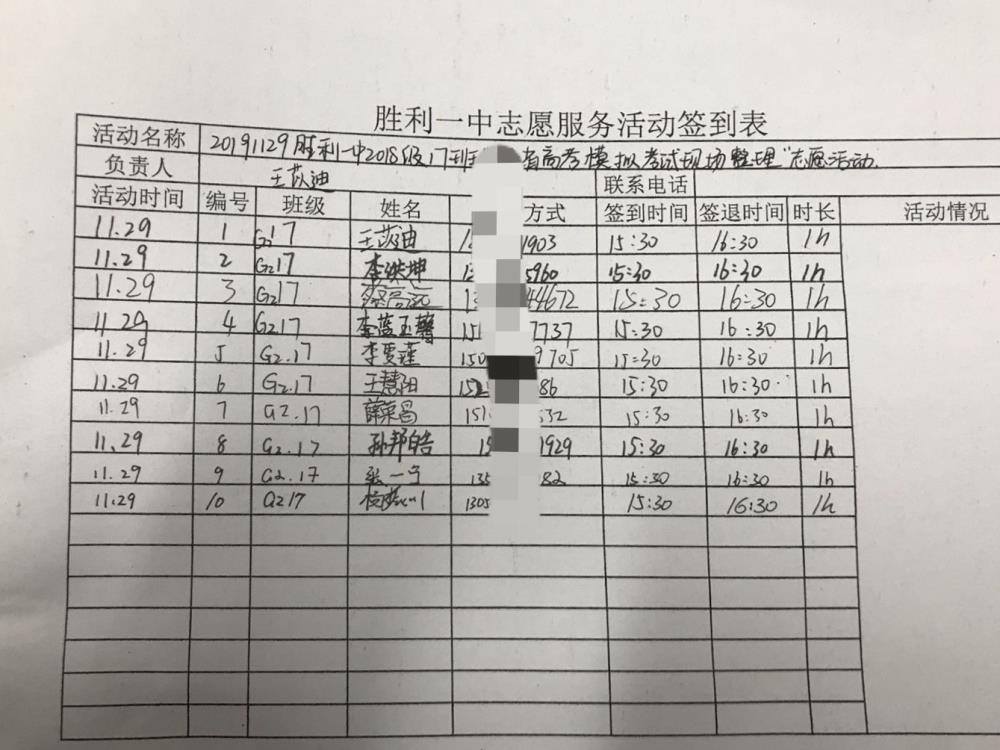 胜利一中志愿服务活动签到表
活动名称 20191129胜利一中2018级17班 省高考模拟考试现场整理"志愿活动.
负责人 王苡迪 联系电话
活动时间 编号 班级 姓名 方式 签到时间 签退时间 时长 活动情况
11.29 1 G217 王苡迪 1903 15:30 16:30 1h
11.29 2 G217 李洪坤 13 5960 15:30 16:30 1h
11.29 3 G217 13 44672 15:30 16:30 1h
11.29 4 G217 李蓝玉馨 15 7737 15:30 16:30 1h
11.29 5 G2.17 李雯莲 150 9705 15:30 16:30 1h
11.29 6 G2.17 王慧阳 152 86 15:30 16:30 1h
11.29 7 G2.17 薛荣昌 151 532 15:30 16:30 1h
11.29 8 G2.17 孙邦皓 15 1929 15:30 16:30 1h
11.29 9 G2.17 张一宁 135 82 15:30 16:30 1h
11.29 10 G217 1305 15:30 16:30 1h